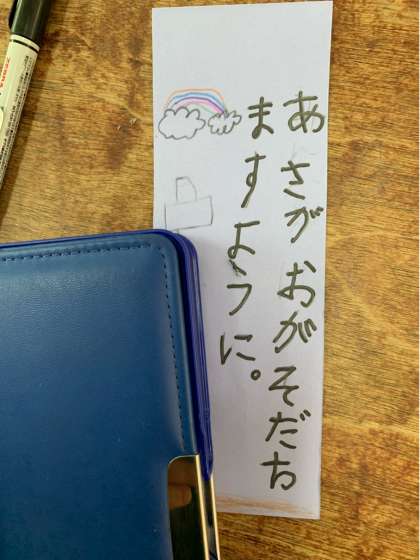 あさがおがそだち
ますように。